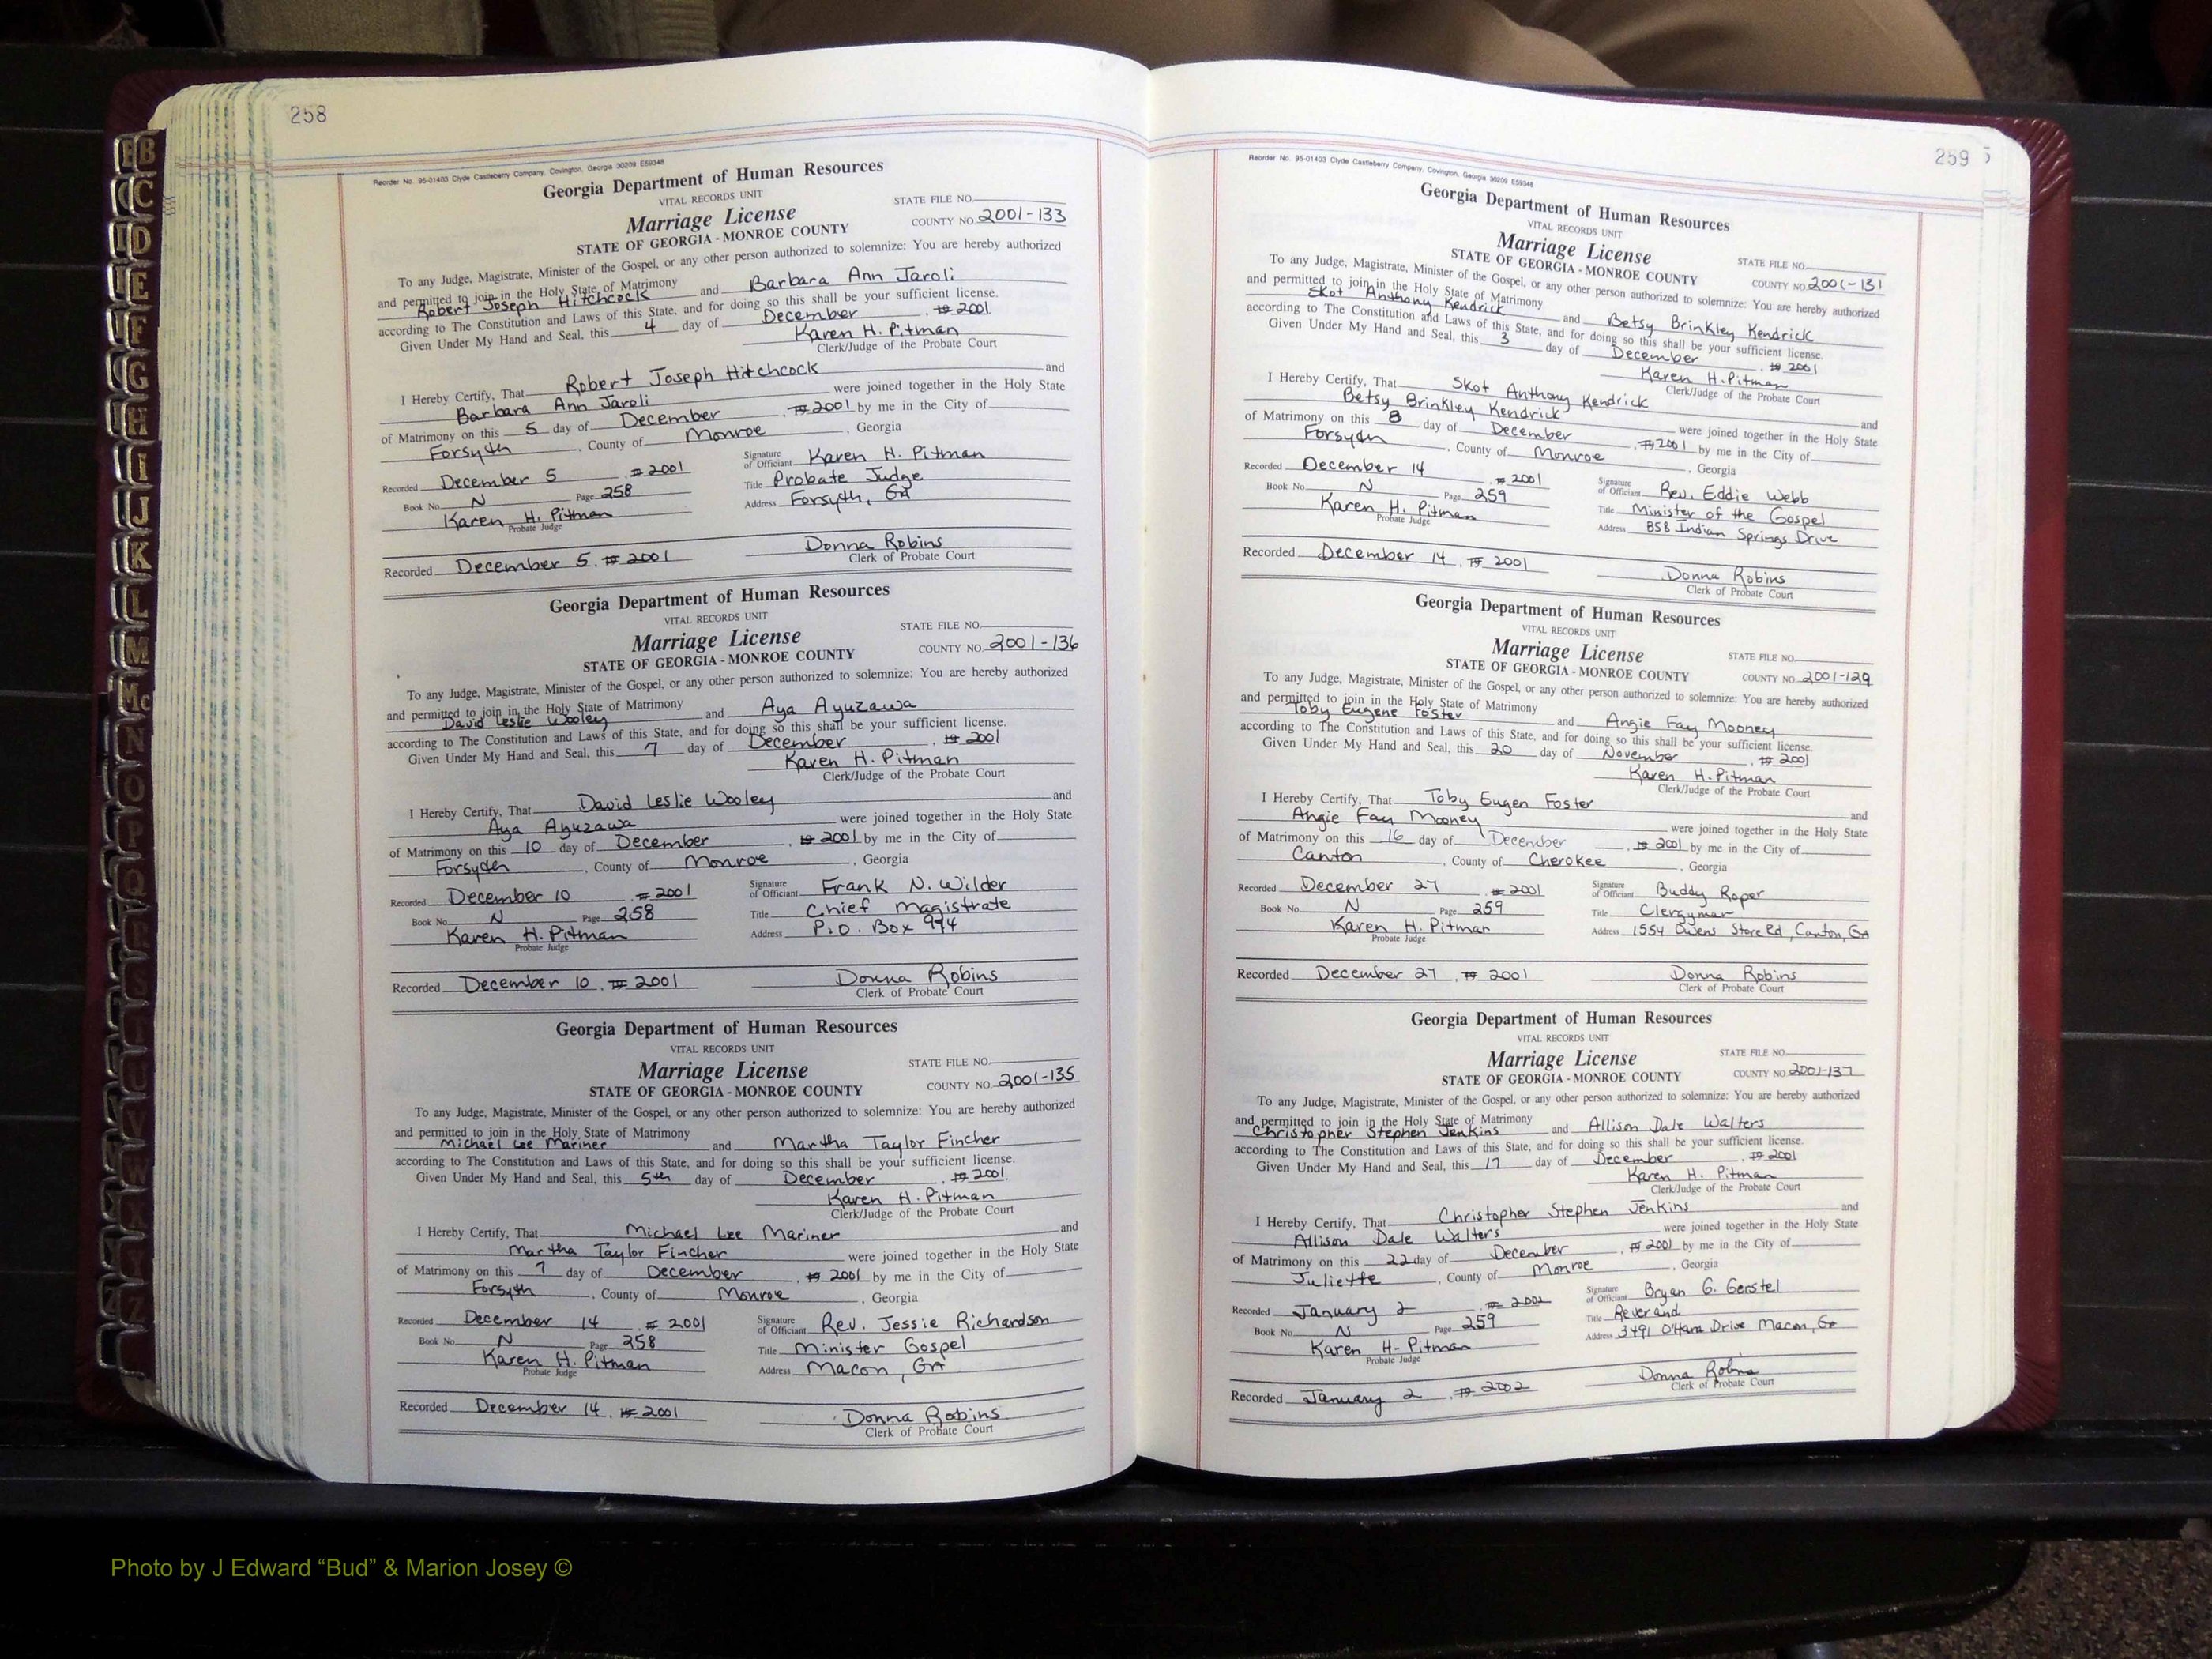 258
Reorder No. 95-01403 Clyde Castleberry Company, Covington, Georgia 30209 E59348
Georgia Department of Human Resources
VITAL RECORDS UNIT
Marriage License
STATE FILE NO.
STATE OF GEORGIA - MONROE COUNTY
COUNTY NO. 2001-133
To any Judge, Magistrate, Minister of the Gospel, or any other person authorized to solemnize: You are hereby authorized
and permitted to join in the Holy State of Matrimony
Robert Joseph Hitchcock and Barbara Ann Jaroli
according to The Constitution and Laws of this State, and for doing so this shall be your sufficient license.
Given Under My Hand and Seal, this 4 day of December, 2001
Karen H. Pitman
Clerk/Judge of the Probate Court
I Hereby Certify, That Robert Joseph Hitchcock and
Barbara Ann Jaroli were joined together in the Holy State
of Matrimony on this 5 day of December, 2001 by me in the City of
Forsyth, County of Monroe, Georgia
Recorded December 5 2001
Signature of Officiant Karen H. Pitman
Book No. N Page 258
Title Probate Judge
Karen H. Pitman
Address Forsyth, GA
Probate Judge
Recorded December 5, 2001
Donna Robins
Clerk of Probate Court
Georgia Department of Human Resources
VITAL RECORDS UNIT
Marriage License
STATE FILE NO.
STATE OF GEORGIA - MONROE COUNTY
COUNTY NO. 2001-136
To any Judge, Magistrate, Minister of the Gospel, or any other person authorized to solemnize: You are hereby authorized
and permitted to join in the Holy State of Matrimony
David Leslie Wooley and Aya Ayuzawa
according to The Constitution and Laws of this State, and for doing so this shall be your sufficient license.
Given Under My Hand and Seal, this 7 day of December, 2001
Karen H. Pitman
Clerk/Judge of the Probate Court
I Hereby Certify, That David Leslie Wooley and
Aya Ayuzawa were joined together in the Holy State
of Matrimony on this 10 day of December, 2001 by me in the City of
Forsyth, County of Monroe, Georgia
Recorded December 10, 2001
Signature of Officiant Frank N. Wilder
Book No. N Page 258
Title Chief Magistrate
Karen H. Pitman
Address P.O. Box 974
Probate Judge
Recorded December 10, 2001
Donna Robins
Clerk of Probate Court
Georgia Department of Human Resources
VITAL RECORDS UNIT
Marriage License
STATE FILE NO.
STATE OF GEORGIA - MONROE COUNTY
COUNTY NO. 2001-135
To any Judge, Magistrate, Minister of the Gospel, or any other person authorized to solemnize: You are hereby authorized
and permitted to join in the Holy State of Matrimony
Michael Lee Mariner and Martha Taylor Fincher
according to The Constitution and Laws of this State, and for doing so this shall be your sufficient license.
Given Under My Hand and Seal, this 5th day of December, 2001
Karen H. Pitman
Clerk/Judge of the Probate Court
I Hereby Certify, That Michael Lee Mariner and
Martha Taylor Fincher were joined together in the Holy State
of Matrimony on this 7 day of December, 2001 by me in the City of
Forsyth, County of Monroe, Georgia
Recorded December 14, 2001
Signature of Officiant Rev. Jessie Richardson
Book No. N Page 258
Title Minister Gospel
Karen H. Pitman
Address Macon, GA
Probate Judge
Recorded December 14, 2001
Donna Robins
Clerk of Probate Court
259
Reorder No. 95-01403 Clyde Castleberry Company, Covington, Georgia 30209 E59348
Georgia Department of Human Resources
VITAL RECORDS UNIT
Marriage License
STATE FILE NO.
STATE OF GEORGIA - MONROE COUNTY
COUNTY NO. 2001-131
To any Judge, Magistrate, Minister of the Gospel, or any other person authorized to solemnize: You are hereby authorized
and permitted to join in the Holy State of Matrimony
Skot Anthony Kendrick and Betsy Brinkley Kendrick
according to The Constitution and Laws of this State, and for doing so this shall be your sufficient license.
Given Under My Hand and Seal, this 3 day of December, 2001
Karen H. Pitman
Clerk/Judge of the Probate Court
I Hereby Certify, That Skot Anthony Kendrick and
Betsy Brinkley Kendrick were joined together in the Holy State
of Matrimony on this 8 day of December, 2001 by me in the City of
Forsyth, County of Monroe, Georgia
Recorded December 14, 2001
Signature of Officiant Rev. Eddie Webb
Book No. N Page 259
Title Minister of the Gospel
Karen H. Pitman
Address 858 Indian Springs Drive
Probate Judge
Recorded December 14, 2001
Donna Robins
Clerk of Probate Court
Georgia Department of Human Resources
VITAL RECORDS UNIT
Marriage License
STATE FILE NO.
STATE OF GEORGIA - MONROE COUNTY
COUNTY NO. 2001-129
To any Judge, Magistrate, Minister of the Gospel, or any other person authorized to solemnize: You are hereby authorized
and permitted to join in the Holy State of Matrimony
Toby Eugene Foster and Angie Fay Mooney
according to The Constitution and Laws of this State, and for doing so this shall be your sufficient license.
Given Under My Hand and Seal, this 20 day of November, 2001
Karen H. Pitman
Clerk/Judge of the Probate Court
I Hereby Certify, That Toby Eugen Foster and
Angie Fay Mooney were joined together in the Holy State
of Matrimony on this 16 day of December, 2001 by me in the City of
Canton, County of Cherokee, Georgia
Recorded December 27, 2001
Signature of Officiant Buddy Roper
Book No. N Page 259
Title Clergyman
Karen H. Pitman
Address 1554 Owens Store Rd, Canton, GA
Probate Judge
Recorded December 27, 2001
Donna Robins
Clerk of Probate Court
Georgia Department of Human Resources
VITAL RECORDS UNIT
Marriage License
STATE FILE NO.
STATE OF GEORGIA - MONROE COUNTY
COUNTY NO. 2001-137
To any Judge, Magistrate, Minister of the Gospel, or any other person authorized to solemnize: You are hereby authorized
and permitted to join in the Holy State of Matrimony
Christopher Stephen Jenkins and Allison Dale Walters
according to The Constitution and Laws of this State, and for doing so this shall be your sufficient license.
Given Under My Hand and Seal, this 17 day of December, 2001
Karen H. Pitman
Clerk/Judge of the Probate Court
I Hereby Certify, That Christopher Stephen Jenkins and
Allison Dale Walters were joined together in the Holy State
of Matrimony on this 22 day of December, 2001 by me in the City of
Juliette, County of Monroe, Georgia
Recorded January 2, 2002
Signature of Officiant Bryan G. Gerstel
Book No. N Page 259
Title Reverand
Karen H. Pitman
Address 3491 O'Hara Drive Macon, Ga
Probate Judge
Recorded January 2, 2002
Donna Robins
Clerk of Probate Court
B
C
D
E
F
G
H
I
J
K
L
M
Mc
N
O
P
Q
R
Photo by J Edward “Bud” & Marion Josey ©